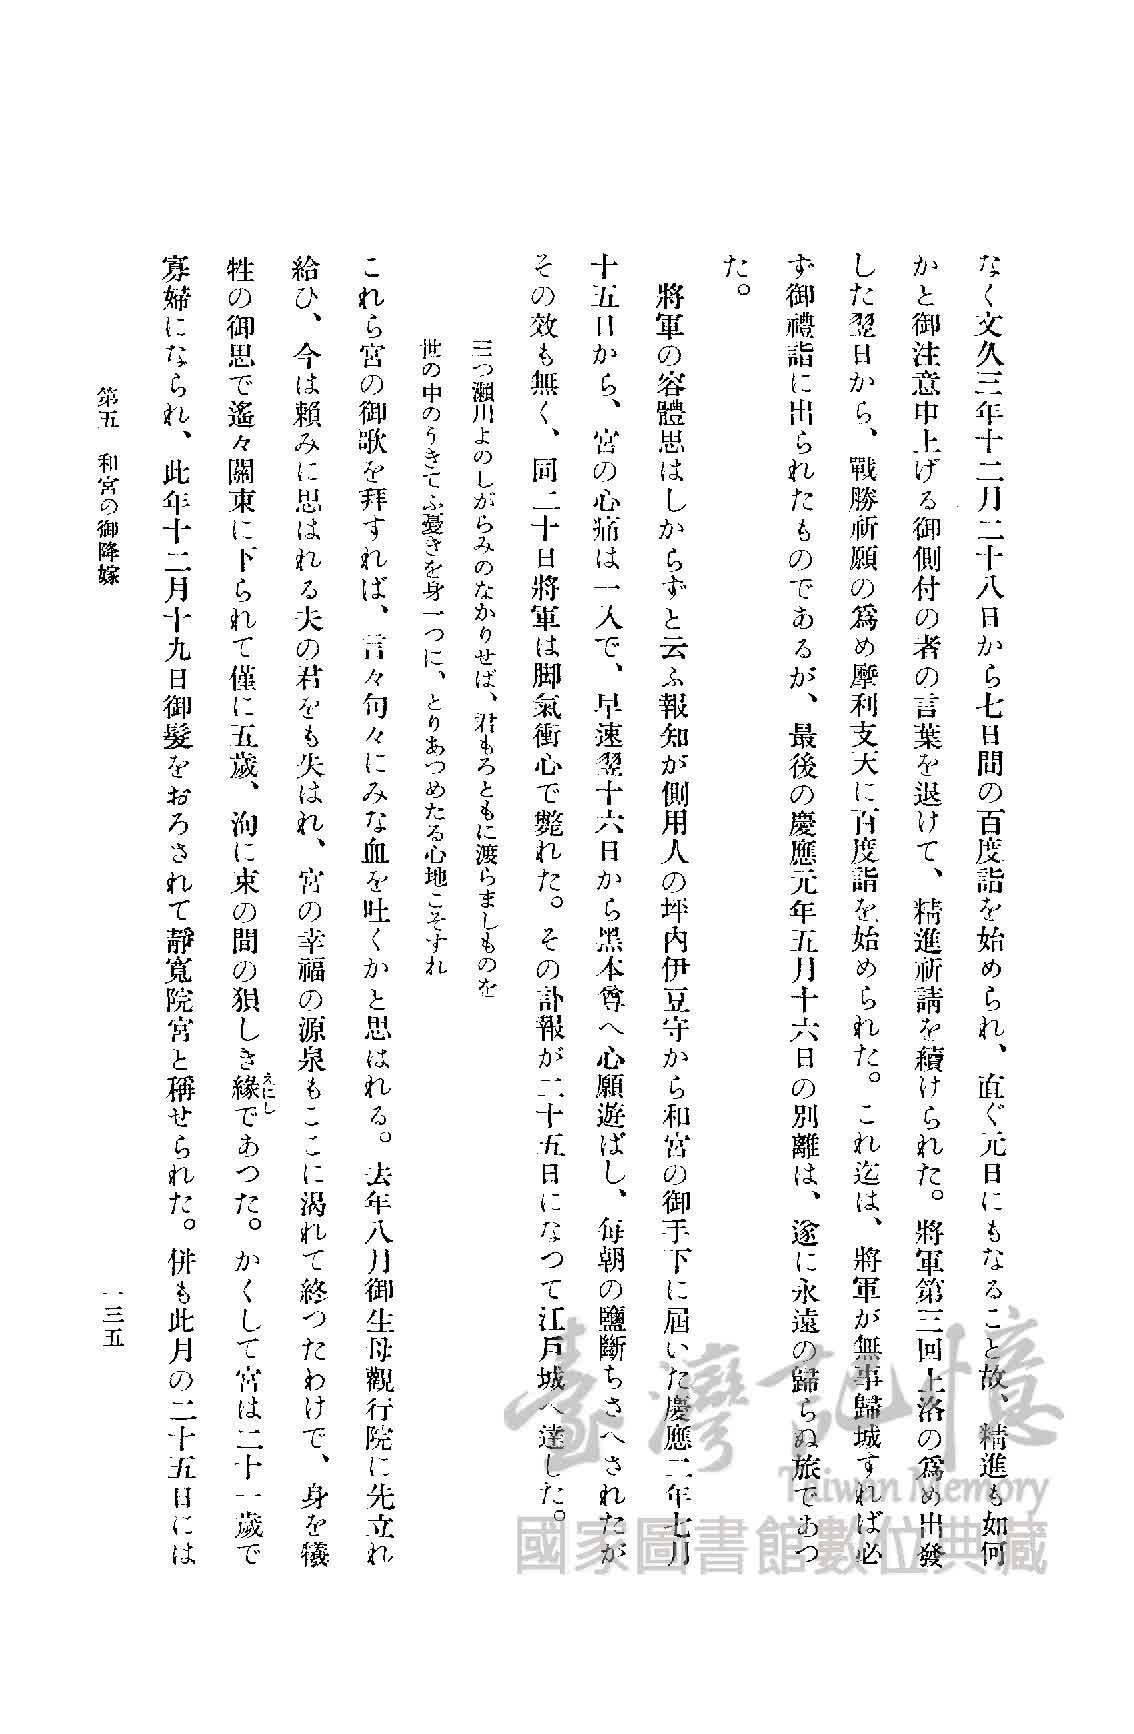 なく文久三年十二月二十八日から七日間の百度詣を始められ、直ぐ元日にもなること故、精進も如何
かと御注意申上げる御側付の者の言葉を退けて、精進祈請を續けられた。將軍第三回上洛の爲め出發
した翌日から、戰勝祈願の爲め摩利支天に百度詣を始められた。これ迄は、將軍が無事歸城すれば必
ず御禮詣に出られたものであるが、最後の慶應元年五月十六日の別離は、遂に永遠の歸らぬ旅であつ
た。
將軍の容體思はしからずと云ふ報知が側用人の坪内伊豆守から和宮の御手下に屆いた慶應二年七月
十五日から、宮の心痛は一人で、早速翌十六日から黑本尊へ心願遊ばし、每朝の鹽斷ちさへされたが
その效も無く、同二十日將軍は脚氣衝心で斃れた。その訃報が二十五日になつて江戶城へ達した。
三つ瀨川よのしがらみのなかりせば、君もろともに渡らましものを
世の中のうきてふ憂きを身一つに、とりあつめたる心地こそすれ
これら宮の御歌を拜すれば、言々句々にみな血を吐くかと思はれる。去年八月御生母觀行院に先立れ
給ひ、今は賴みに思はれる夫の君をも失はれ、宮の幸福の源泉もここに渴れて終つたわけで、身を犧
牲の御思で遙々關東に下られて僅に五歲、洵に束の間の狽しき緣であつた。かくして宮は二十一歲で
えにし
寡婦になられ、此年十二月十九日御髮をおろされて靜寬院宮と稱せられた。併も此月の二十五日には
第五 和宮の御降嫁
一三五
臺灣記憶
Taiwan Memory
國家圖書館數位典藏